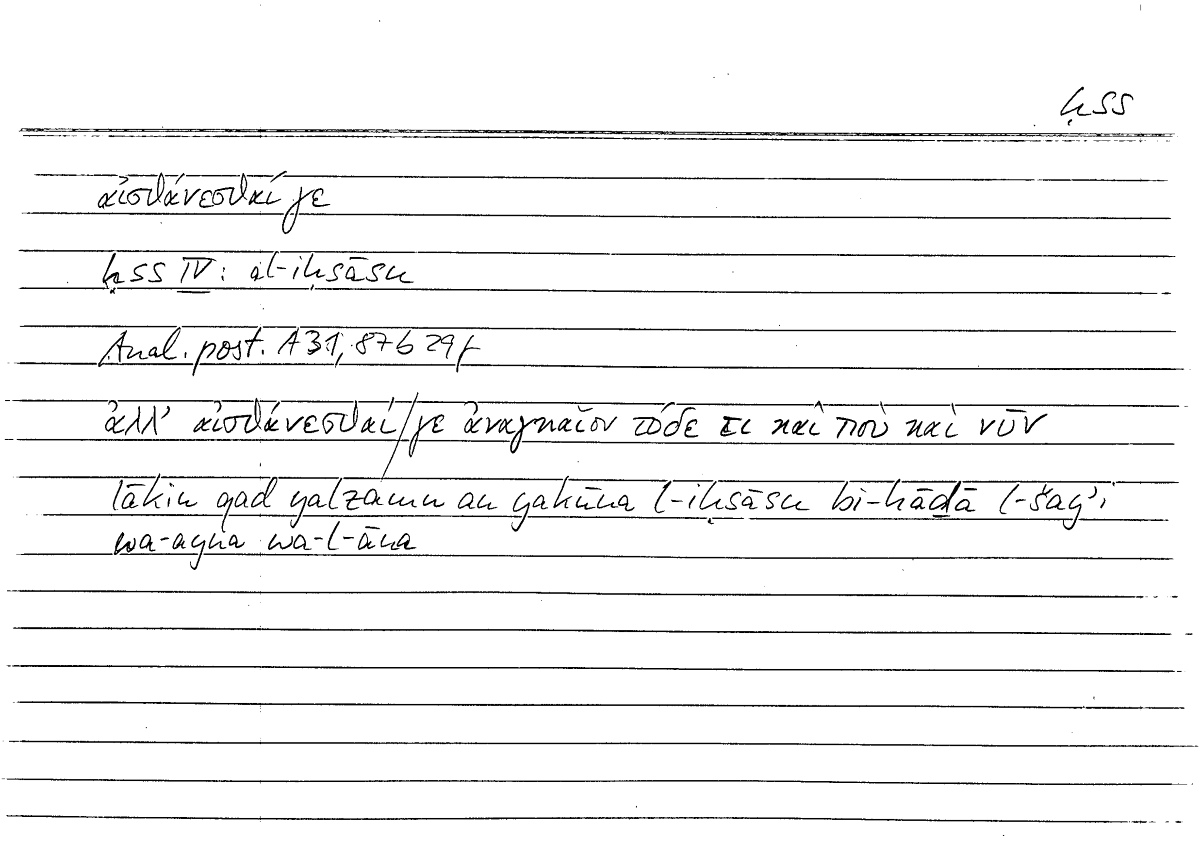 ḥss
αἰσθάνεσθαί γε
ḥss IV: al-iḥsāsu
Anal. post. A31, 87b29f
ἀλλ’ αἰσθάνεσθαί/γε ἀναγκαῖον τόδε τι καὶ ποὺ καὶ νῦν
lākin qad yalzamu an yakūna l-iḥsāsu bi-hāḏā l-šay’i
wa-ayna wa-l-āna